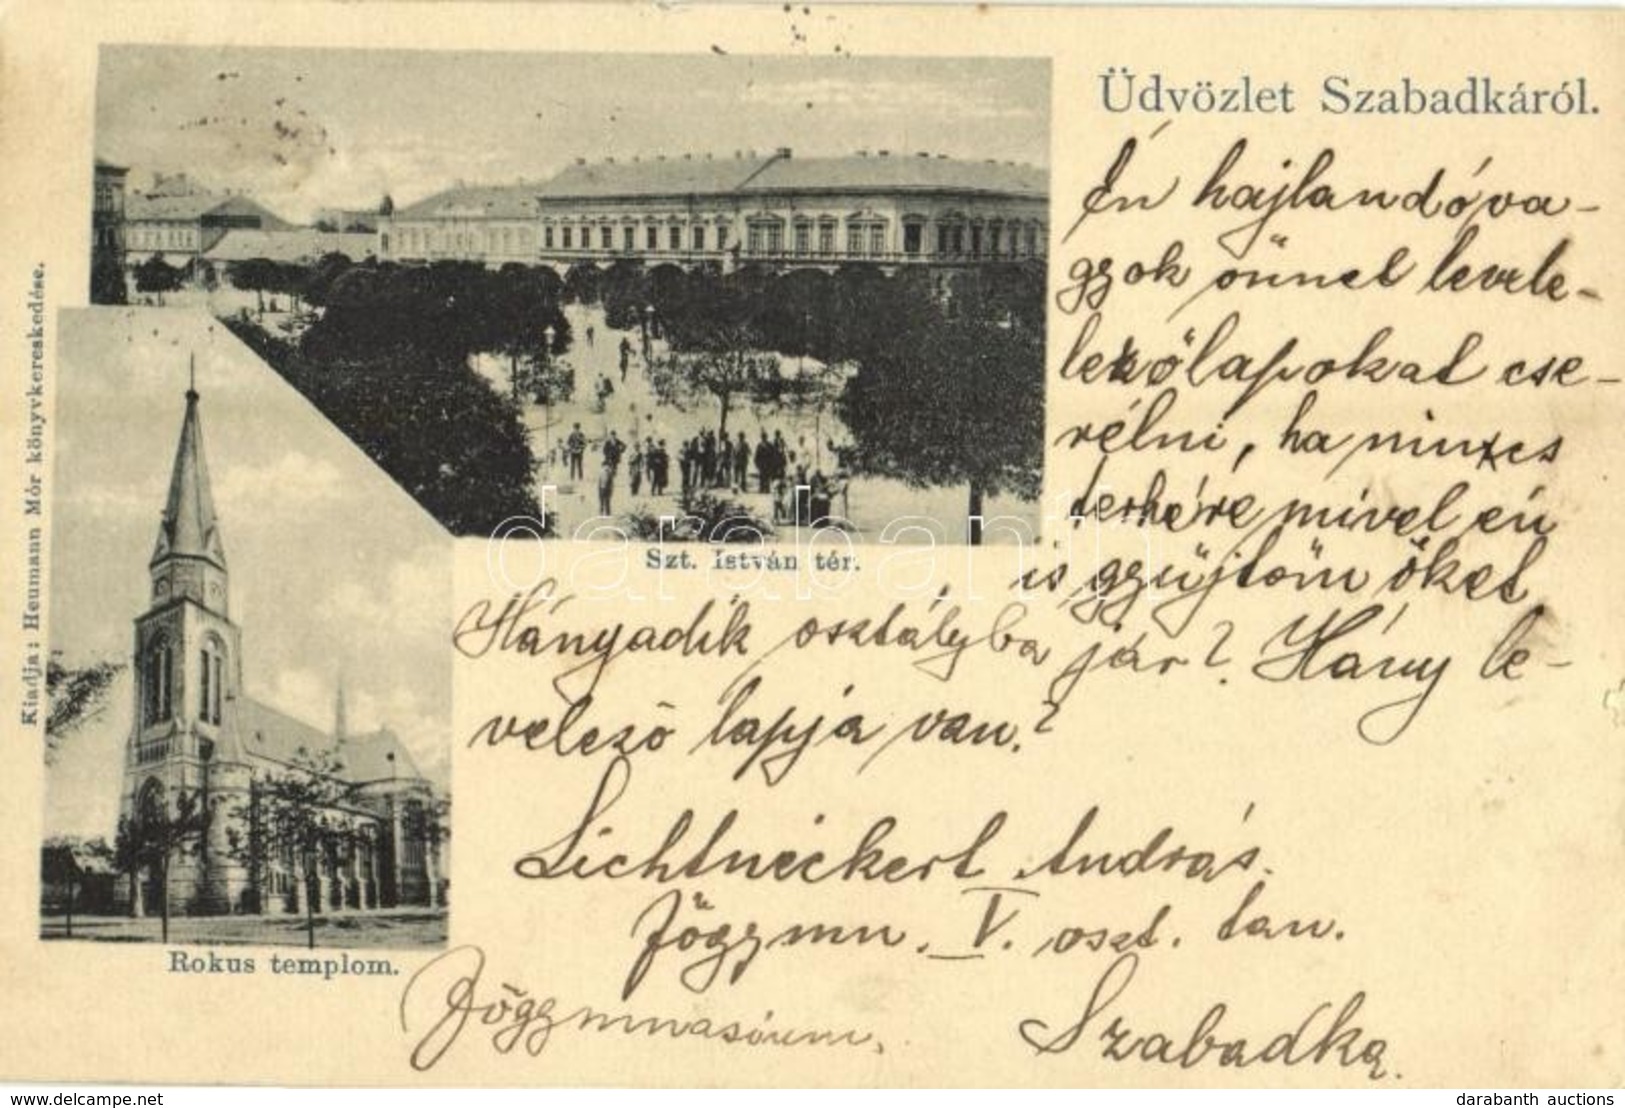 Üdvözlet Szabadkáról.
Én hajlandó va-
gyok önnel levele-
lezőlapokat cse-
rélni, ha nincs
terhére mivel én
is gyüjtöm őket
Hányadik osztályba jár? Hány le-
velező lapja van?
Lichtneckert András.
Főgymn. V. oszt. tan.
Főgymnasium.
Szabadka.
Szt. István tér.
Rokus templom.
Kiadja: Heumann Mór könyvkereskedése.
darabanth
darabanth auctions
delcampe.net